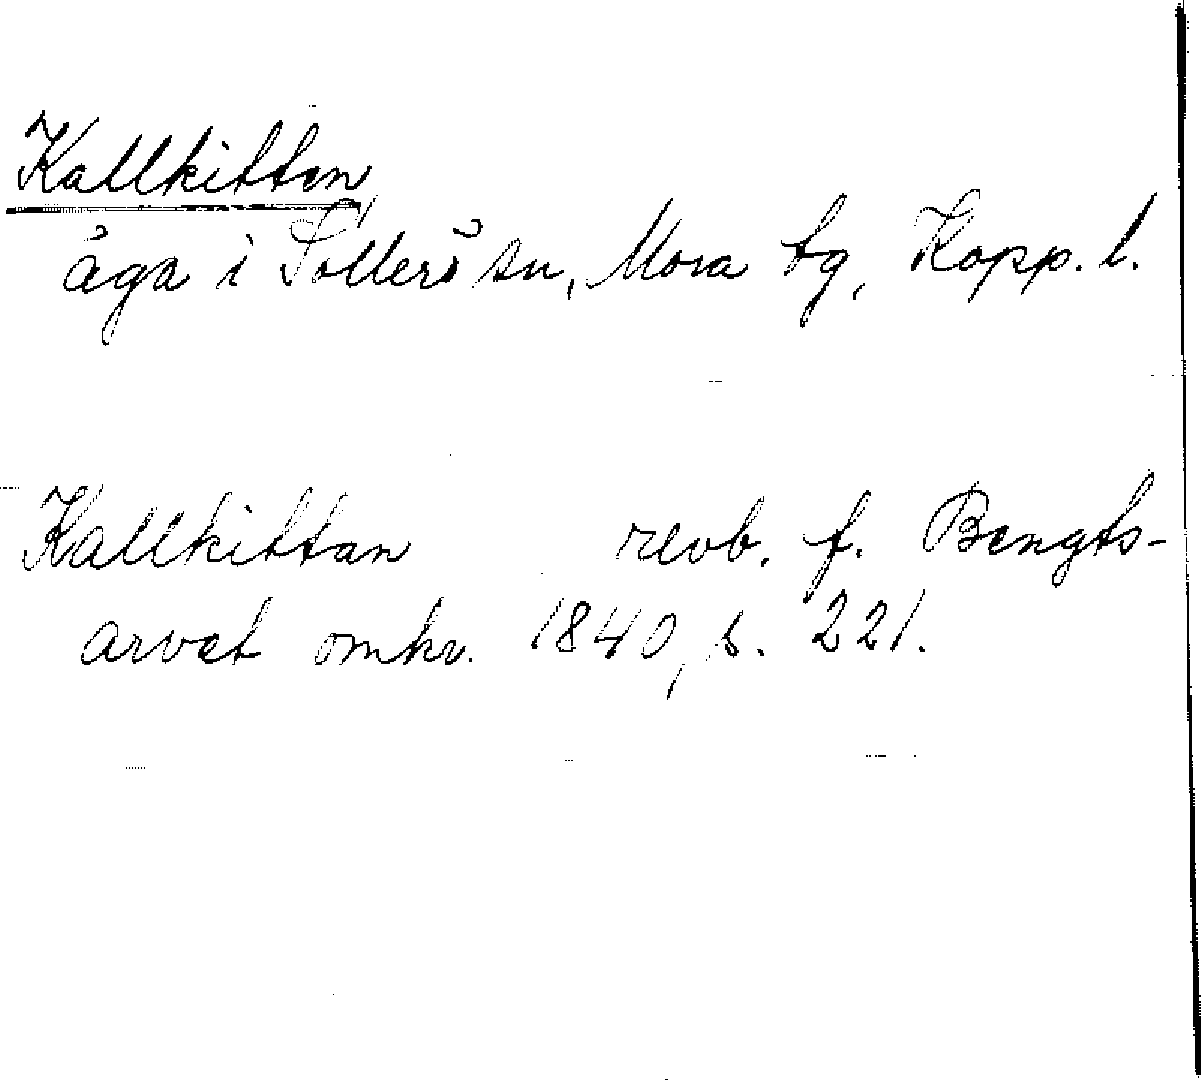 Kallkittan,
äga i Sollerö sn, Mora tg, Kopp. l.
Kallkittan revb. f. Bengts-
arvet omkr. 1840, s. 221.